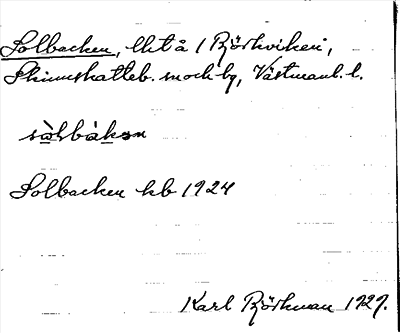 Solbacken, lht å 1 Björkviken,
Skinnskatteb. sn och bg, Västmanl. l.
sòlbàkɘn
Solbacken kb 1924
Karl Björkman 1927.